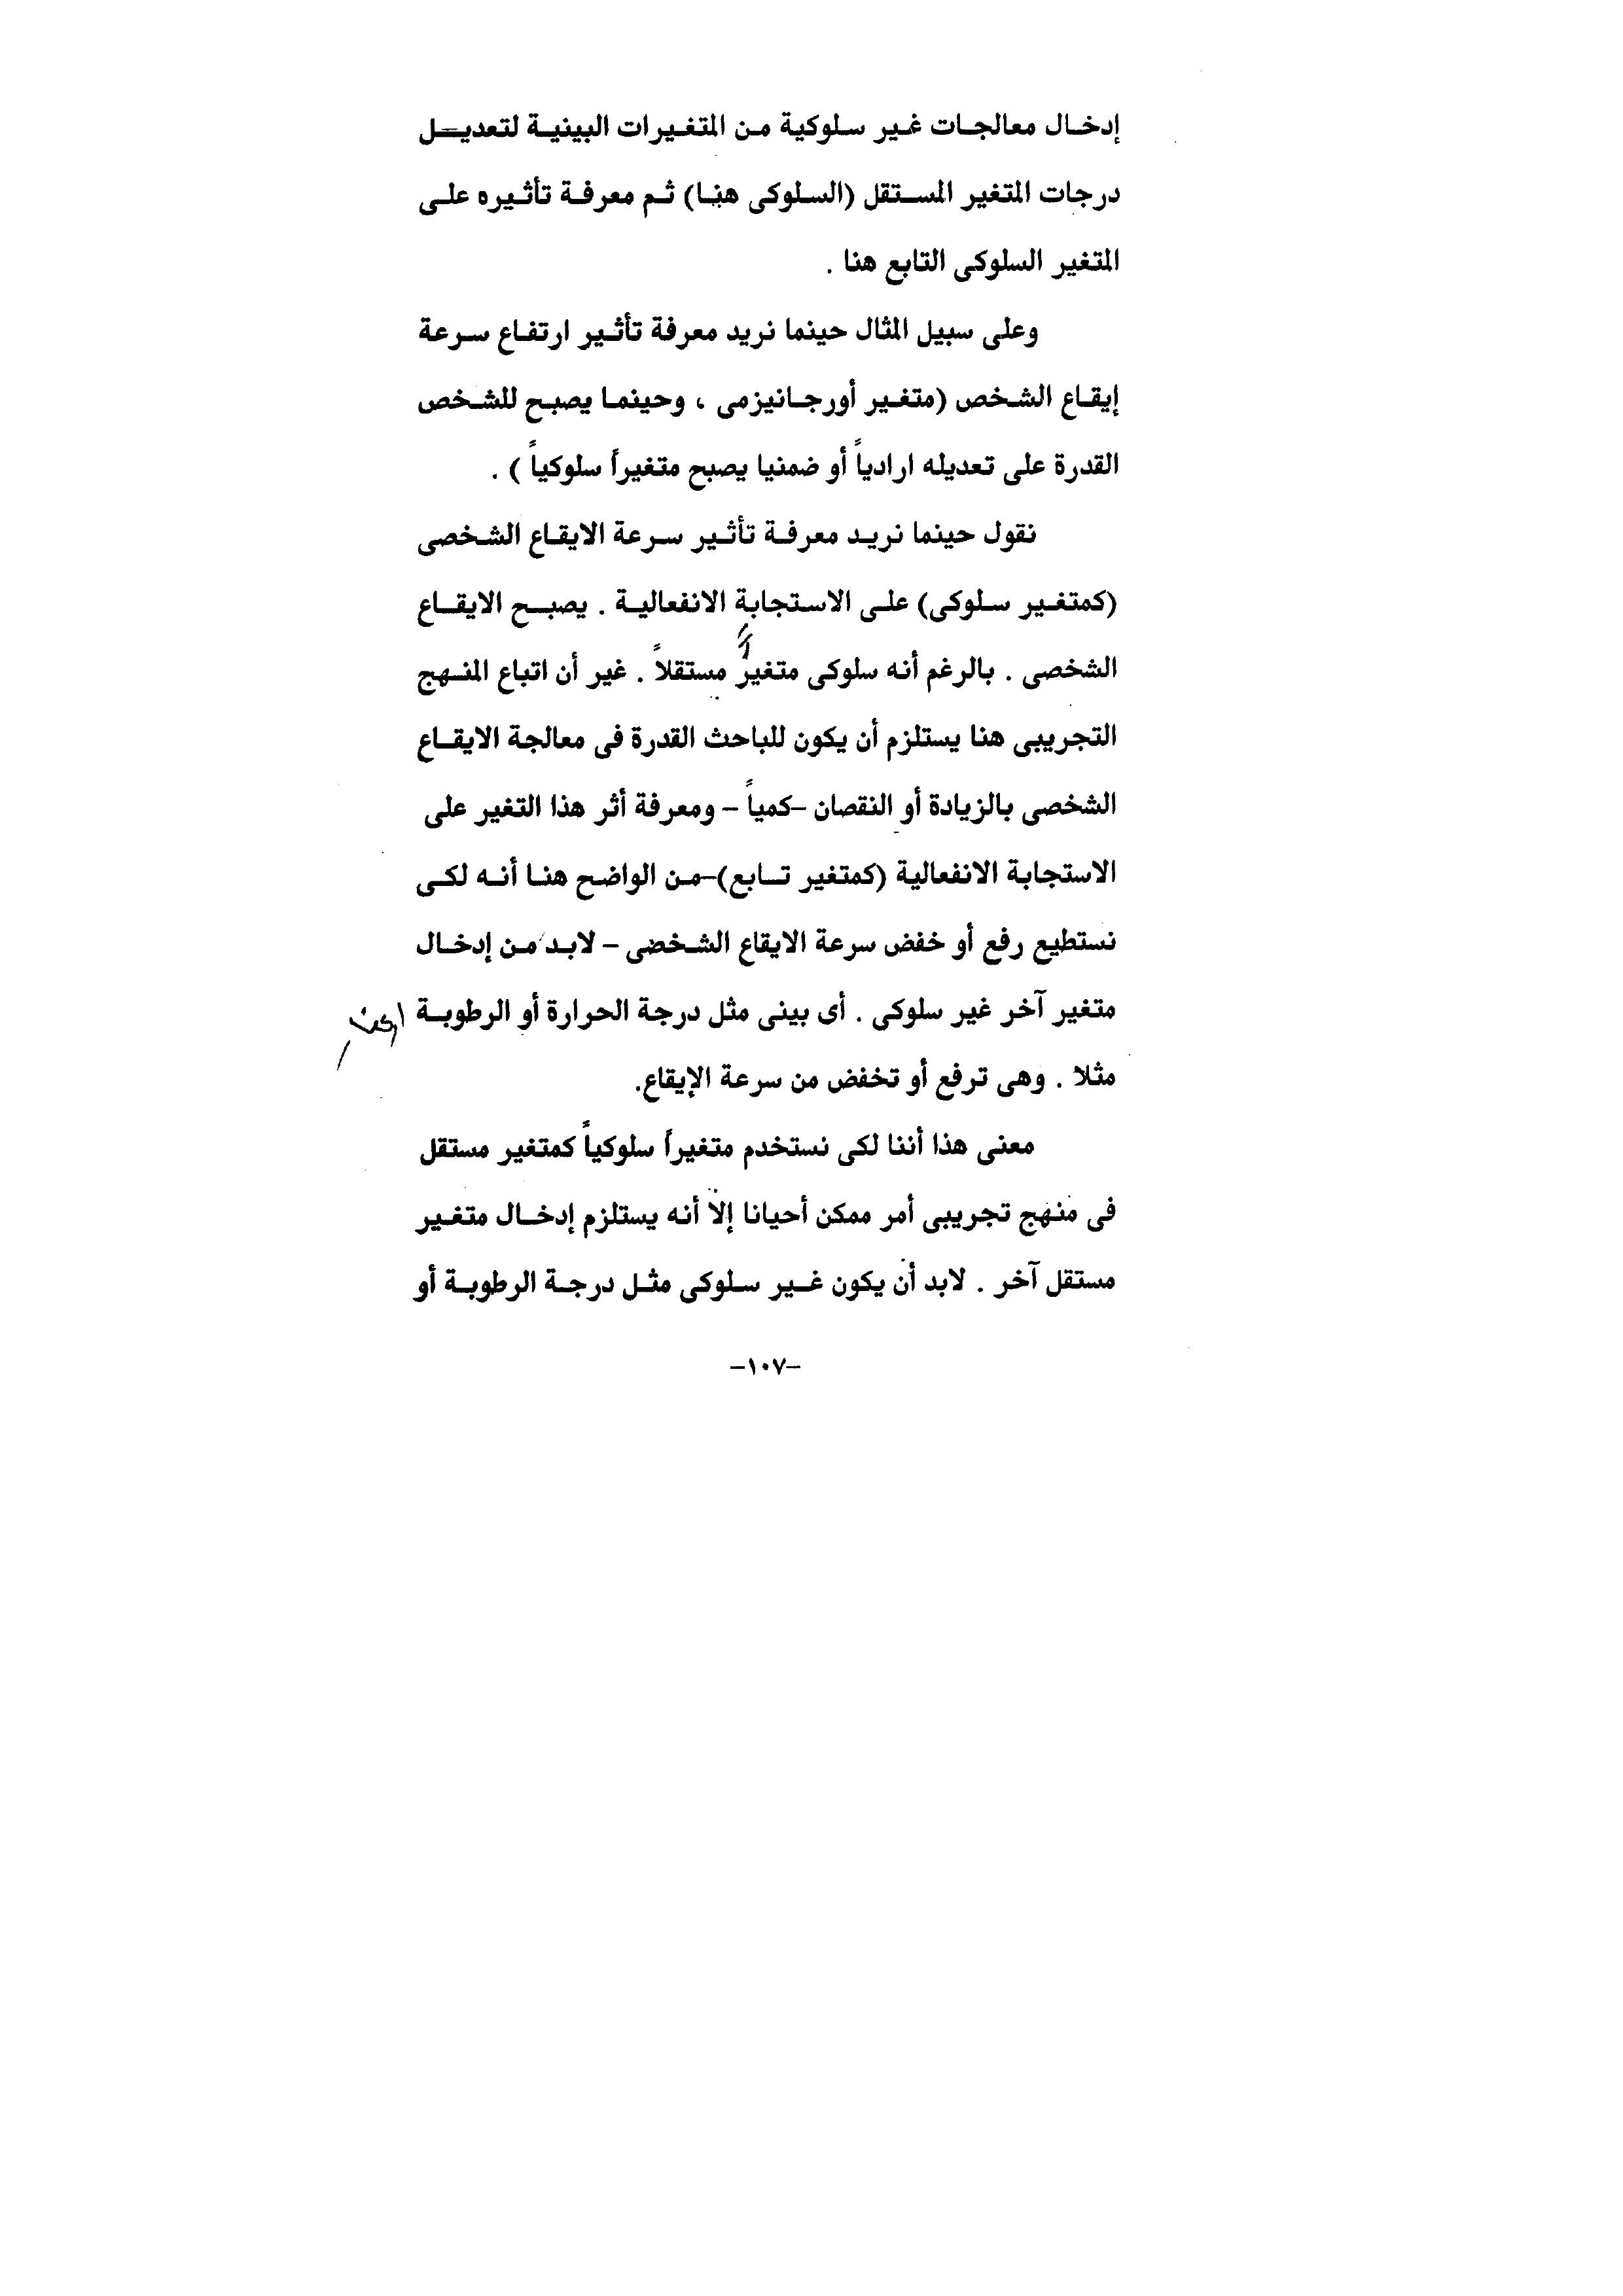 إدخال معالجات غير سلوكية من المتغيرات البينية لتعديل
درجات المتغير المستقل (السلوكى هنا) ثم معرفة تأثيره على
المتغير السلوكى التابع هنا .
وعلى سبيل المثال حينما نريد معرفة تأثير ارتفاع سرعة
إيقاع الشخص (متغير أورجانيزمى ، وحينما يصبح للشخص
القدرة على تعديله ارادياً أو ضمنيا يصبح متغيراً سلوكياً ) .
نقول حينما نريد معرفة تأثير سرعة الايقاع الشخصى
(كمتغير سلوكى) على الاستجابة الانفعالية . يصبح الايقاع
الشخصى . بالرغم أنه سلوكى متغير مستقلاً . غير أن اتباع المنهج
التجريبى هنا يستلزم أن يكون للباحث القدرة فى معالجة الايقاع
الشخصى بالزيادة أو النقصان –كمياً – ومعرفة أثر هذا التغير على
الاستجابة الانفعالية (كمتغير تابع)–من الواضح هنا أنه لكى
نستطيع رفع أو خفض سرعة الايقاع الشخضى – لابد من إدخال
متغير آخر غير سلوكى . أى بينى مثل درجة الحرارة أو الرطوبة
مثلا . وهى ترفع أو تخفض من سرعة الإيقاع.
معنى هذا أننا لكى نستخدم متغيراً سلوكياً كمتغير مستقل
فى منهج تجريبى أمر ممكن أحيانا إلا أنه يستلزم إدخال متغير
مستقل آخر . لابد أن يكون غير سلوكى مثل درجة الرطوبة أو
–١٠٧–